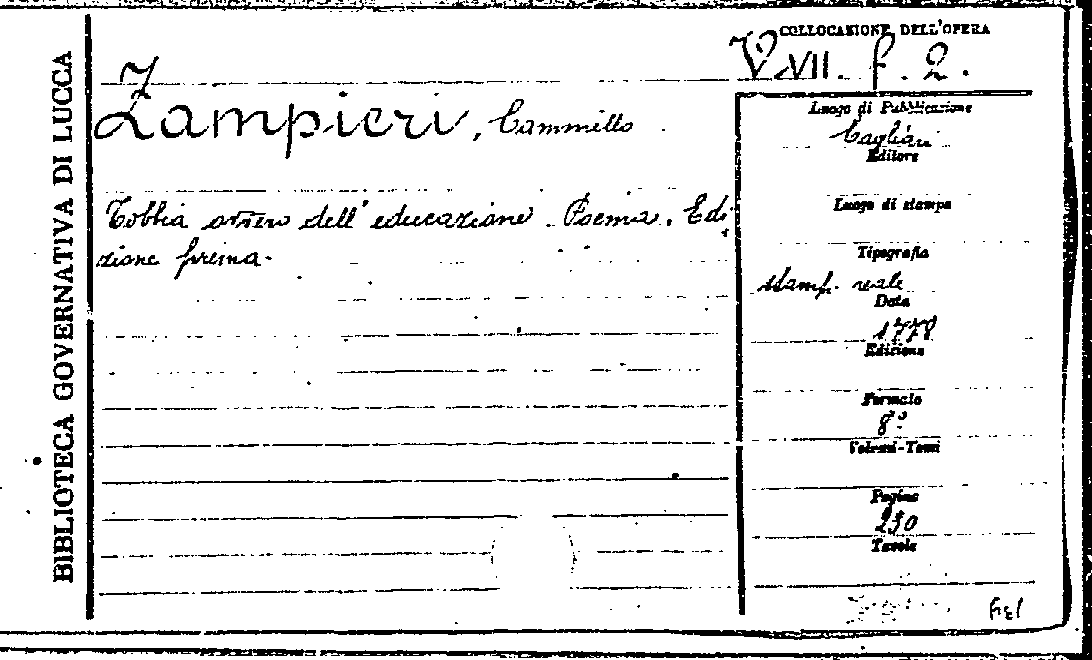 BIBLIOTECA GOVERNATIVA DI LUCCA
COLLOCAZIONE DELL'OPERA
V.VII. f. 2.
Z
Zampieri, Cammillo
Tobbia ovvero dell'educazione. Poema. Edi-
zione prima.
Luogo di Pubblicazione
Cagliari
Editore
Luogo di stampa
Tipografia
stamp. reale
Data
1778
Edizione
Formato
8º
Volumi-Tomi
Pagine
230
Tavole